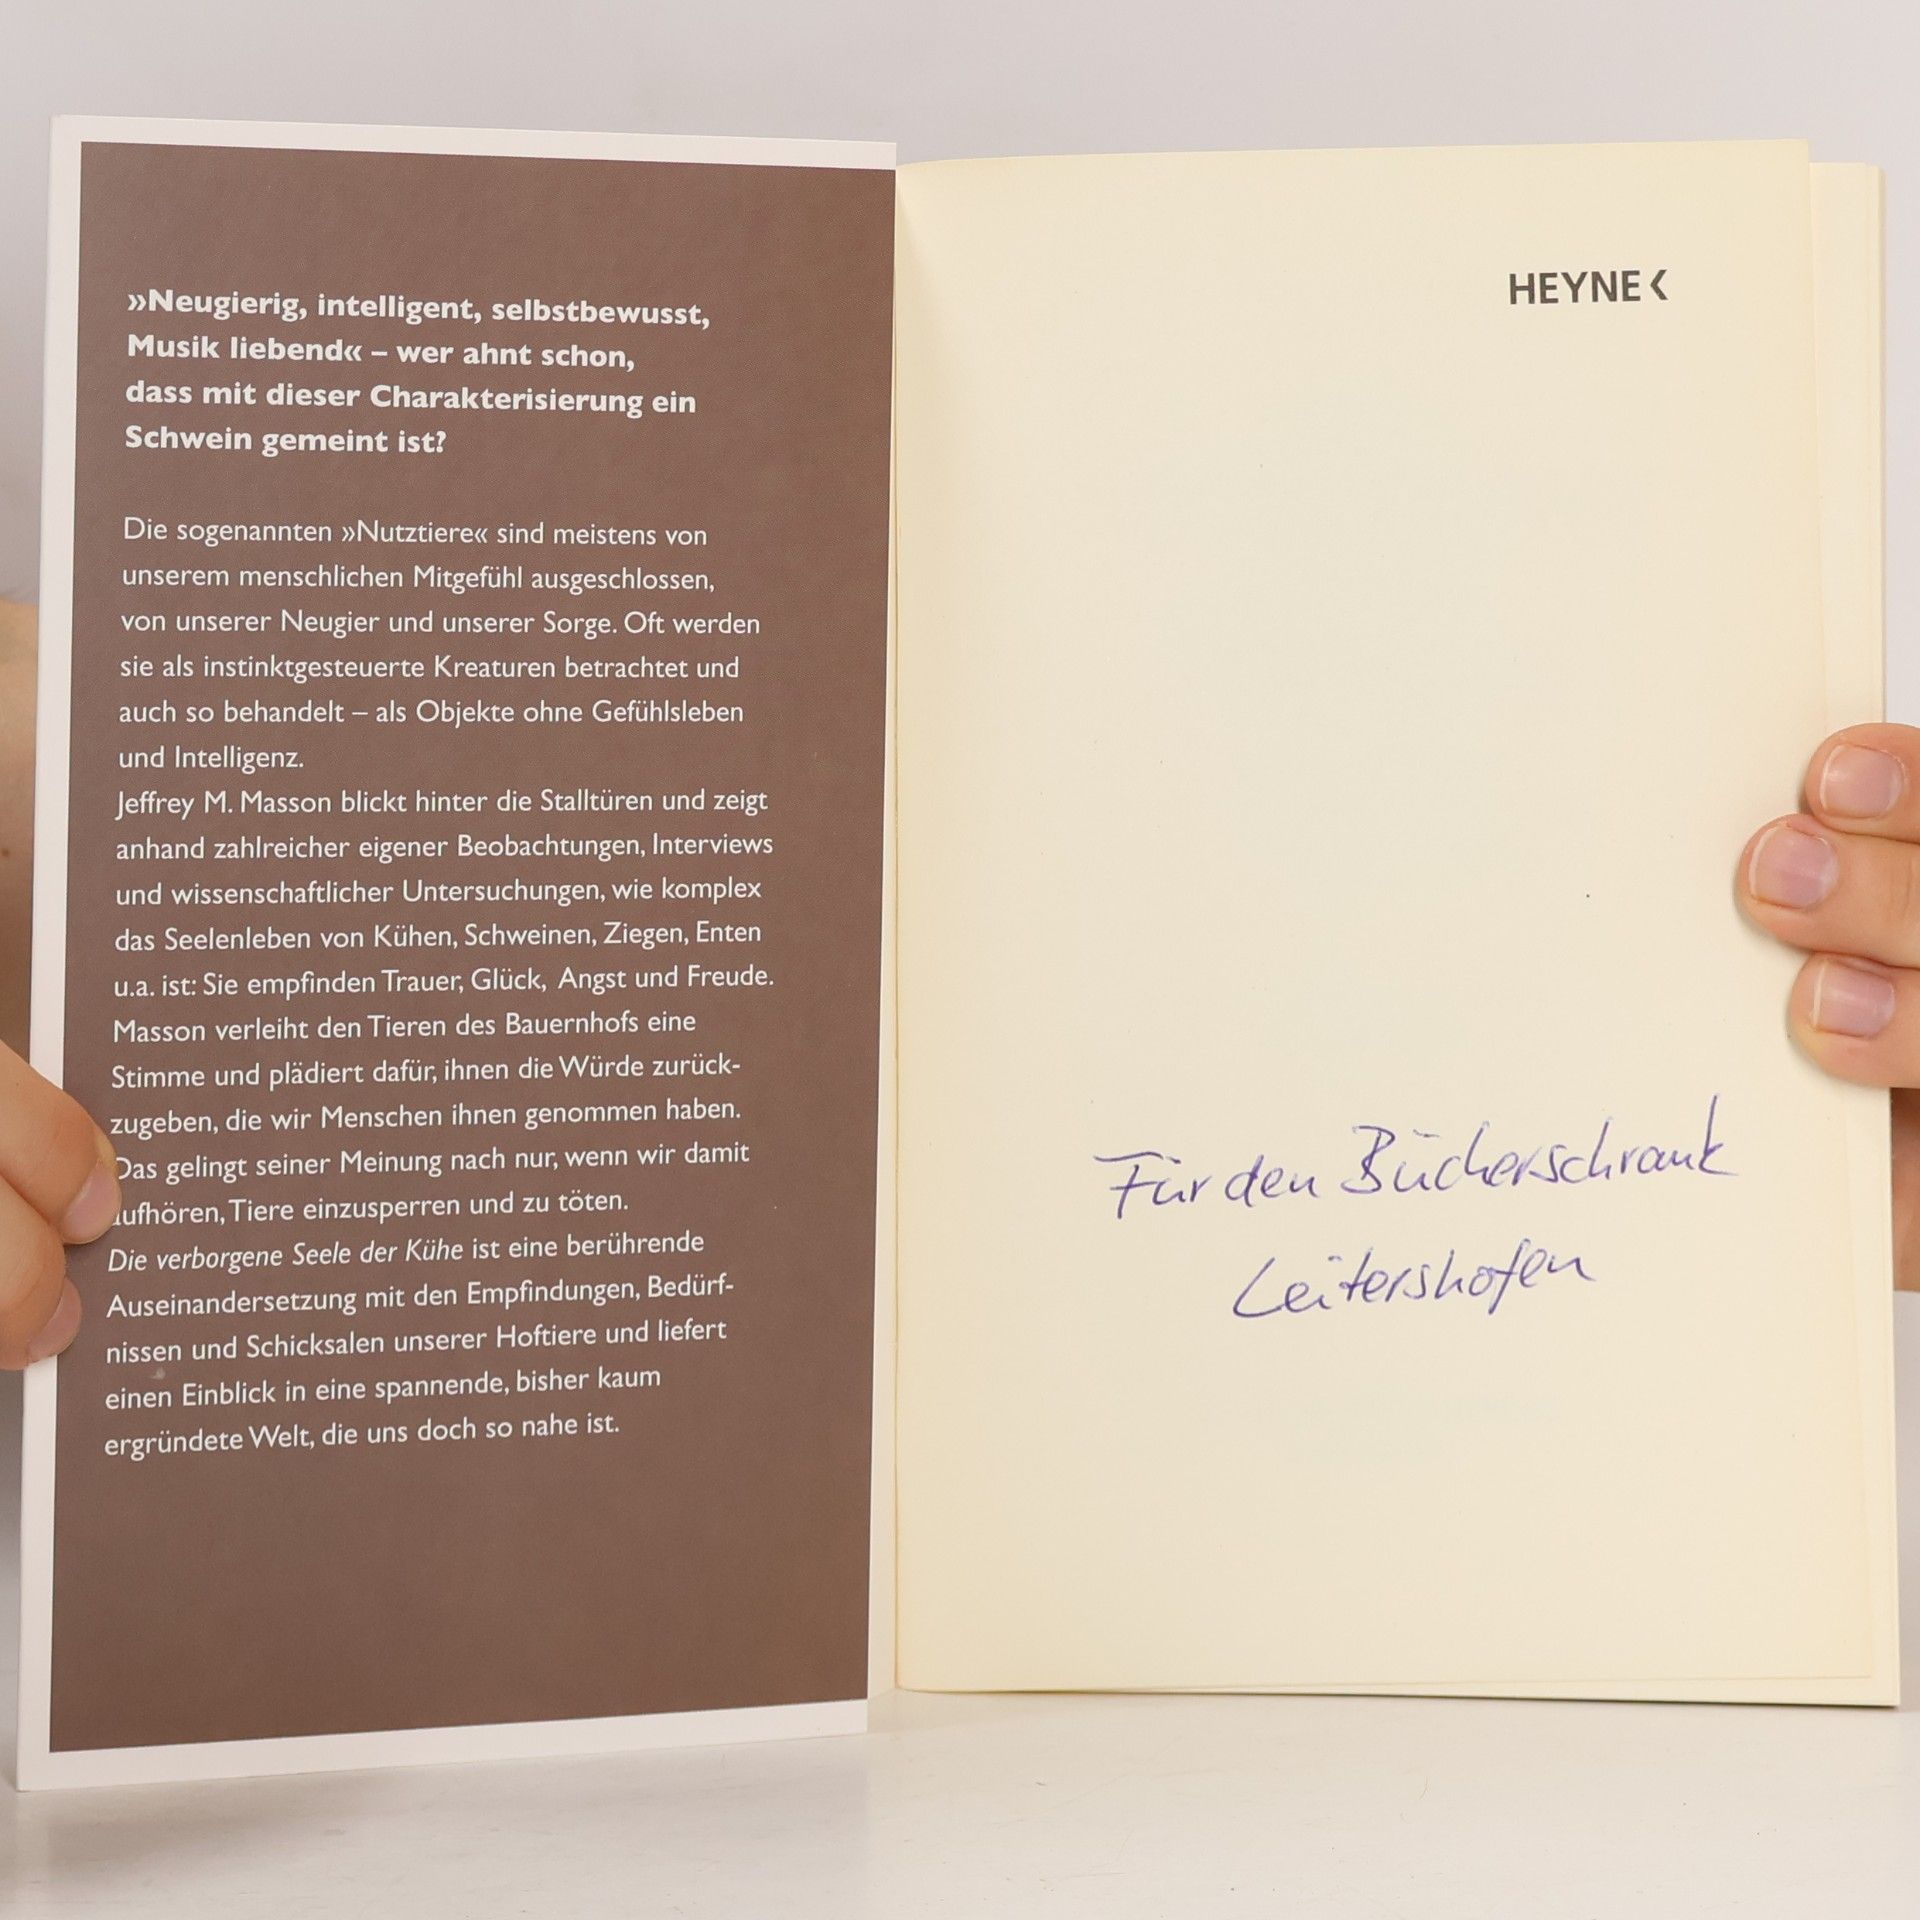 »Neugierig, intelligent, selbstbewusst,
Musik liebend« – wer ahnt schon,
dass mit dieser Charakterisierung ein
Schwein gemeint ist?
Die sogenannten »Nutztiere« sind meistens von
unserem menschlichen Mitgefühl ausgeschlossen,
von unserer Neugier und unserer Sorge. Oft werden
sie als instinktgesteuerte Kreaturen betrachtet und
auch so behandelt – als Objekte ohne Gefühlsleben
und Intelligenz.
Jeffrey M. Masson blickt hinter die Stalltüren und zeigt
anhand zahlreicher eigener Beobachtungen, Interviews
und wissenschaftlicher Untersuchungen, wie komplex
das Seelenleben von Kühen, Schweinen, Ziegen, Enten
u.a. ist: Sie empfinden Trauer, Glück, Angst und Freude.
Masson verleiht den Tieren des Bauernhofs eine
Stimme und plädiert dafür, ihnen die Würde zurück-
zugeben, die wir Menschen ihnen genommen haben.
Das gelingt seiner Meinung nach nur, wenn wir damit
aufhören, Tiere einzusperren und zu töten.
Die verborgene Seele der Kühe ist eine berührende
Auseinandersetzung mit den Empfindungen, Bedürf-
nissen und Schicksalen unserer Hoftiere und liefert
einen Einblick in eine spannende, bisher kaum
ergründete Welt, die uns doch so nahe ist.
HEYNE<
Für den Bücherschrank
Leitershofen